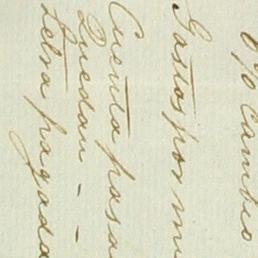 % Cambio
Gastos por
Cuenta pasa
Quedan - -
Letra pagada